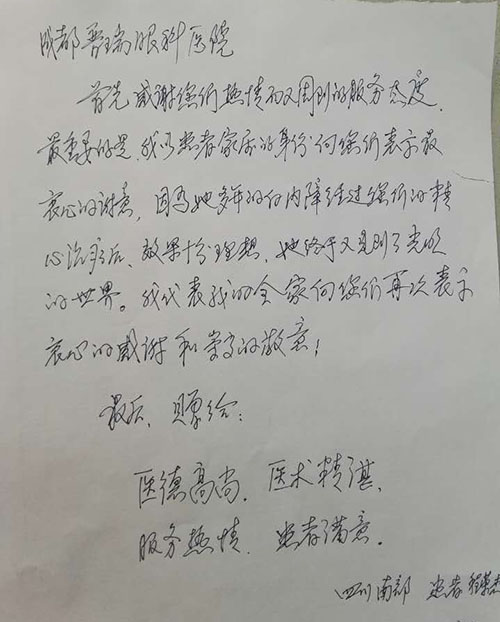 成都普瑞眼科医院
首先感谢您们热情而又周到的服务态度,
最重要的是,我以患者家属的身份向您们表示最
衷心的谢意,因为她多年的白内障经过您们的精
心治疗后、效果十分理想,她终于又见到了光明
的世界。我代表我的全家向您们再次表示
衷心的感谢和崇高的敬意!
最后,赠给:
医德高尚、医术精湛、
服务热情、患者满意。
四川南部 患者